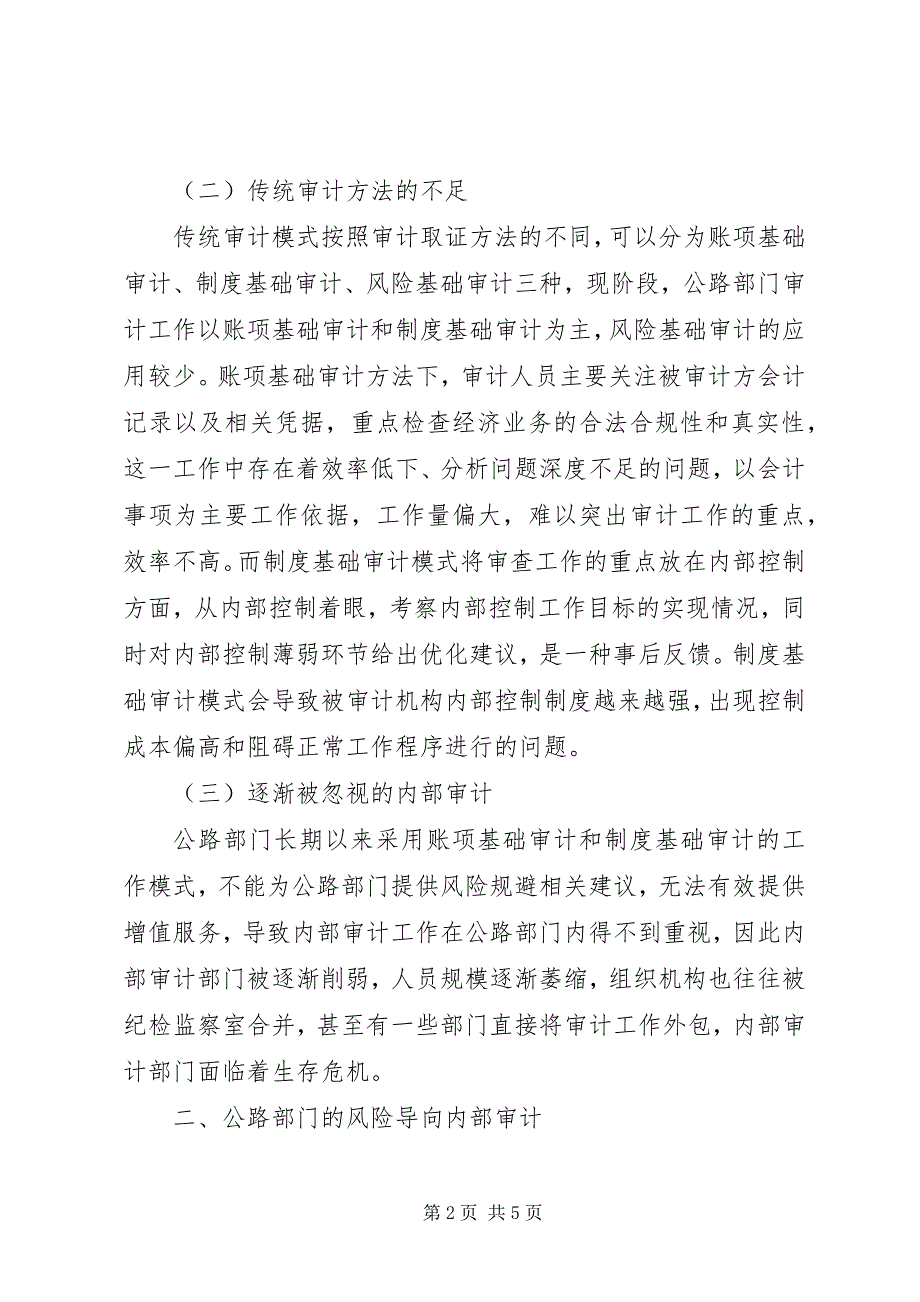 （二）传统审计方法的不足
传统审计模式按照审计取证方法的不同，可以分为账项基础
审计、制度基础审计、风险基础审计三种，现阶段，公路部门审
计工作以账项基础审计和制度基础审计为主，风险基础审计的应
用较少。账项基础审计方法下，审计人员主要关注被审计方会计
记录以及相关凭据，重点检查经济业务的合法合规性和真实性，
这一工作中存在着效率低下、分析问题深度不足的问题，以会计
事项为主要工作依据，工作量偏大，难以突出审计工作的重点，
效率不高。而制度基础审计模式将审查工作的重点放在内部控制
方面，从内部控制着眼，考察内部控制工作目标的实现情况，同
时对内部控制薄弱环节给出优化建议，是一种事后反馈。制度基
础审计模式会导致被审计机构内部控制制度越来越强，出现控制
成本偏高和阻碍正常工作程序进行的问题。
（三）逐渐被忽视的内部审计
公路部门长期以来采用账项基础审计和制度基础审计的工
作模式，不能为公路部门提供风险规避相关建议，无法有效提供
增值服务，导致内部审计工作在公路部门内得不到重视，因此内
部审计部门被逐渐削弱，人员规模逐渐萎缩，组织机构也往往被
纪检监察室合并，甚至有一些部门直接将审计工作外包，内部审
计部门面临着生存危机。
二、公路部门的风险导向内部审计
第 2 页 共 5 页